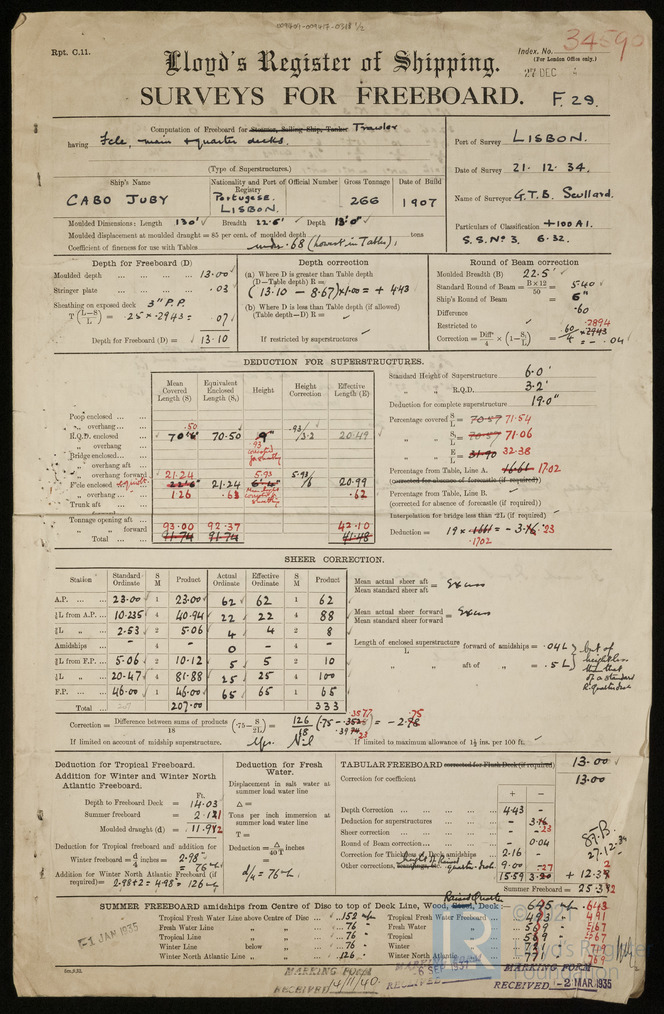 009404-009417-0318 1/2
Rpt. C.11.
Index. No. 34590
(For London Office only.)
27 DEC
Lloyd's Register of Shipping.
SURVEYS FOR FREEBOARD. F. 29.
Computation of Freeboard for Steamer, Sailing Ship, Tanker Trawler
having Fcle, main & quarter decks.
(Type of Superstructures.)
Port of Survey LISBON.
Date of Survey 21. 12. 34.
Name of Surveyor G.T.B. Scullard.
Particulars of Classification +100A1.
S.S. No 3. 6.32.
Ship's Name
Nationality and Port of Registry
Official Number
Gross Tonnage
Date of Build
CABO JUBY
Portugese. LISBON.
266
1907
Moulded Dimensions: Length 130' Breadth 22.5' Depth 13.0'
Moulded displacement at moulded draught = 85 per cent. of moulded depth tons
Coefficient of fineness for use with Tables under .68 (lowest in Tables).
Depth for Freeboard (D)
Moulded depth ... 13.00
Stringer plate ... .03
Sheathing on exposed deck 3" P.P.
T (L-S/L) = .25 x .2943 = .07
Depth for Freeboard (D) = 13.10
Depth correction
(a) Where D is greater than Table depth
(D—Table depth) R =
(13.10 - 8.67) x 1.00 = + 4.43
(b) Where D is less than Table depth (if allowed)
(Table depth—D) R =
If restricted by superstructures
Round of Beam correction
Moulded Breadth (B) 22.5'
Standard Round of Beam = B x 12/50 = 5.40
Ship's Round of Beam = 6"
Difference .60
Restricted to
Correction = Diff/4 x (1-S1/L) = .60/4 x .2943 .2894 = - .04
DEDUCTION FOR SUPERSTRUCTURES.
Mean Covered Length (S)
Equivalent Enclosed Length (S1)
Height
Height Correction
Effective Length (E)
Poop enclosed ...
„ overhang ... .50
R.Q.D. enclosed 70.50 9" .93/3.2 20.49
„ overhang .93
Bridge enclosed ...
„ overhang aft ...
„ overhang forward 21.24 5.93
F'cle enclosed 22.6 21.24 5.93/6 20.99
„ overhang ... 1.26 .63 .62
Trunk aft ...
„ forward
Tonnage opening aft ... 93.00 92.37 42.10
„ „ forward
Total ... 91.74 91.74 41.48
Standard Height of Superstructure 6.0'
„ „ R.Q.D. 3.2'
Deduction for complete superstructure 19.0"
Percentage covered S/L = 70.57 71.54
„ „ S1/L = 70.57 71.06
„ „ E/L = 31.90 32.38
Percentage from Table, Line A. 16.61 17.02
(corrected for absence of forecastle (if required))
Percentage from Table, Line B.
(corrected for absence of forecastle (if required))
Interpolation for bridge less than ·2L (if required)
Deduction = 19 x .1661 = - 3.16 .23
.1702
SHEER CORRECTION.
Station
Standard Ordinate
S M
Product
Actual Ordinate
Effective Ordinate
S M
Product
A.P. ... 23.00 1 23.00 62 62 1 62
⅙L from A.P. ... 10.235 4 40.94 22 22 4 88
⅓L „ 2.53 2 5.06 4 4 2 8
Amidships ... - 4 - 0 - 4 -
⅓L from F.P. ... 5.06 2 10.12 5 5 2 10
⅙L „ 20.47 4 81.88 25 25 4 100
F.P. ... 46.00 1 46.00 65 65 1 65
Total ... 207.00 333
Mean actual sheer aft / Mean standard sheer aft = Excess
Mean actual sheer forward / Mean standard sheer forward = Excess
Length of enclosed superstructure/L forward of amidships = .04L
„ „ aft of „ = .5L
but of height less than that of a standard R. Quarter deck
Correction = Difference between sums of products/18 (·75-S/2L) = 126/18 (.75 - .3528 .3577) = - 2.78 .75
If limited on account of midship superstructure. Yes. Nil
If limited to maximum allowance of 1½ ins. per 100 ft.
Deduction for Tropical Freeboard.
Addition for Winter and Winter North Atlantic Freeboard.
Ft.
Depth to Freeboard Deck = 14.03
Summer freeboard = 2.121
Moulded draught (d) = 11.912
Deduction for Tropical freeboard and addition for
Winter freeboard = d/4 inches = 2.98"
76 m/m
Addition for Winter North Atlantic Freeboard (if
required) = 2.98+2 = 4.98 = 126 m/m
Deduction for Fresh Water.
Displacement in salt water at summer load water line
Δ =
Tons per inch immersion at summer load water line
T =
Deduction = Δ/40T inches
d/4 = 76 m/m
TABULAR FREEBOARD corrected for Flush Deck (if required) 13.00
Correction for coefficient 13.00
+ -
Depth Correction ... 4.43 -
Deduction for superstructures ... - 3.16 .23
Sheer correction ... - -
Round of Beam correction ... - 0.04
Correction for Thickness of Deck amidships 2.16 -
Other corrections, height of Raised quarter deck 9.00 .27
15.59 3.20 + 12.39
Summer Freeboard = 25.392
27.12.34
SUMMER FREEBOARD amidships from Centre of Disc to top of Deck Line, Wood, Steel, Deck: Raised Quarter - 645 m/m 643
Tropical Fresh Water Line above Centre of Disc ... 152 m/m
Fresh Water Line „ „ ... 76 „
Tropical Line „ „ ... 76 „
Winter Line below „ ... 76 „
Winter North Atlantic Line „ „ ... 126 „
Tropical Fresh Water Freeboard 493 491
Fresh Water „ 569 567
Tropical „ 569 567
Winter „ 721 719
Winter North Atlantic „ 771 769
1 JAN 1935
5m,9,32.
MARKING FORM
RECEIVED 14/11/40.
6 SEP 1937
RECEIVED
MARKING FORM
RECEIVED - 2 MAR 1935
LR
Lloyd's Register
Foundation